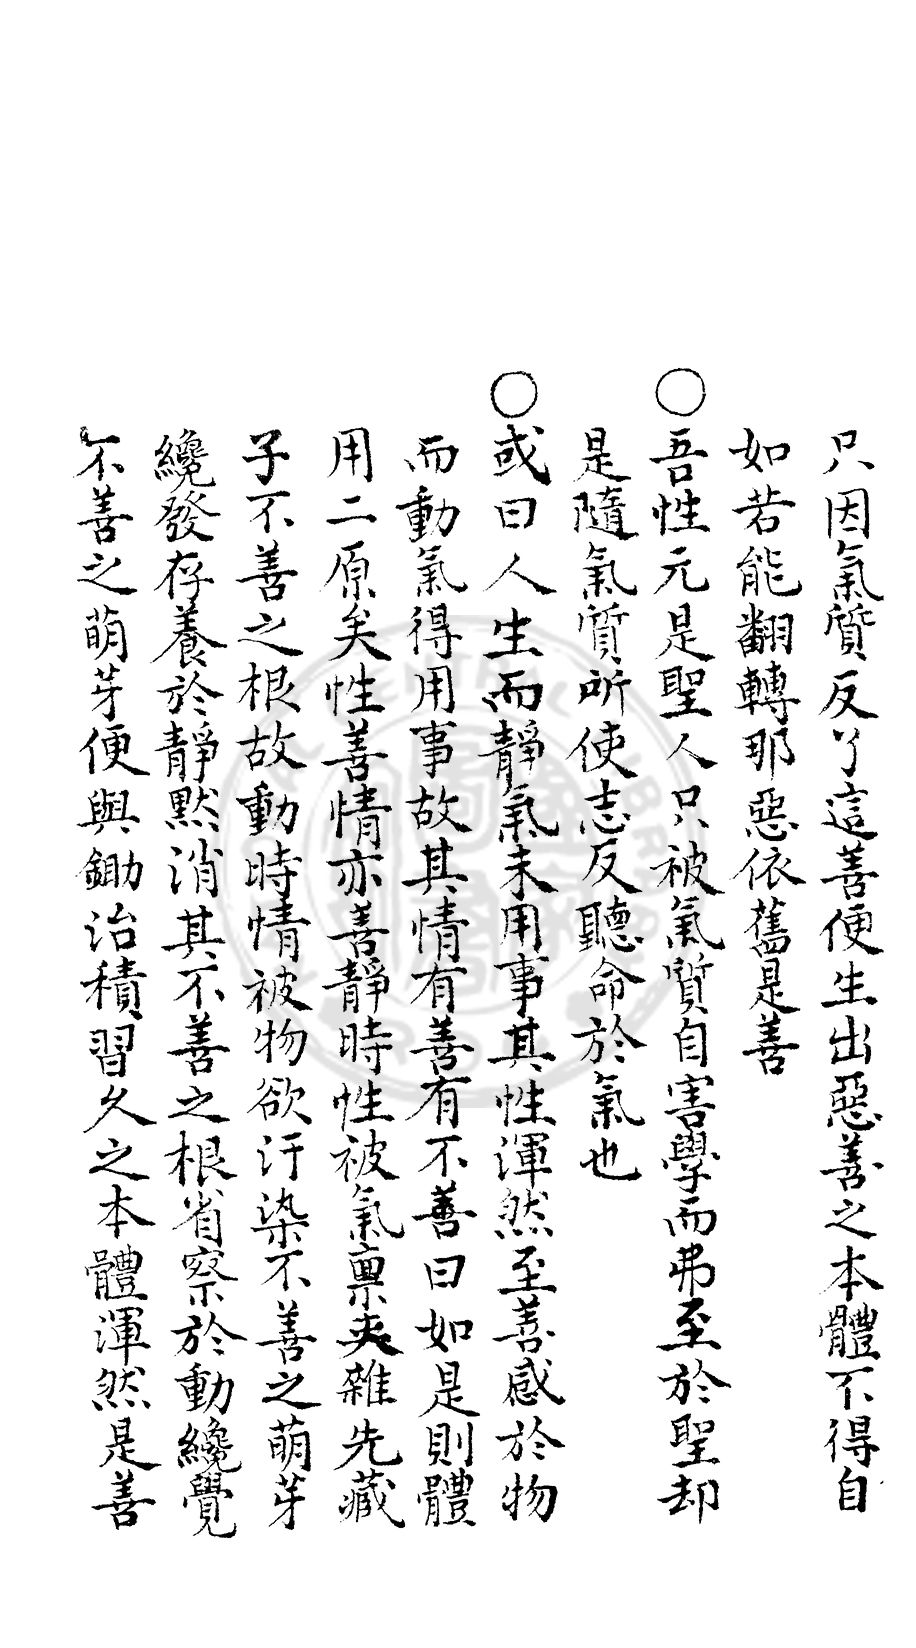 只因氣質反了這善便生出惡善之本體不得自
如若能翻轉那惡依舊是善
○吾性元是聖人只被氣質自害學而弗至於聖却
是隨氣質所使志反聽命於氣也
○或曰人生而靜氣未用事其性渾然至善感於物
而動氣得用事故其情有善有不善曰如是則體
用二原矣性善情亦善靜時性被氣禀夾雜先藏
子不善之根故動時情被物欲汙染不善之萌芽
纔發存養於靜默消其不善之根省察於動纔覺
不善之萌芽便與鋤治積習久之本體渾然是善